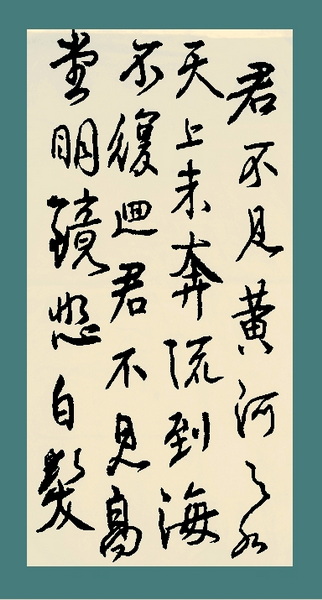 君不見黄河之水
天上来奔流到海
不復迴君不見高
堂明鏡悲白髮